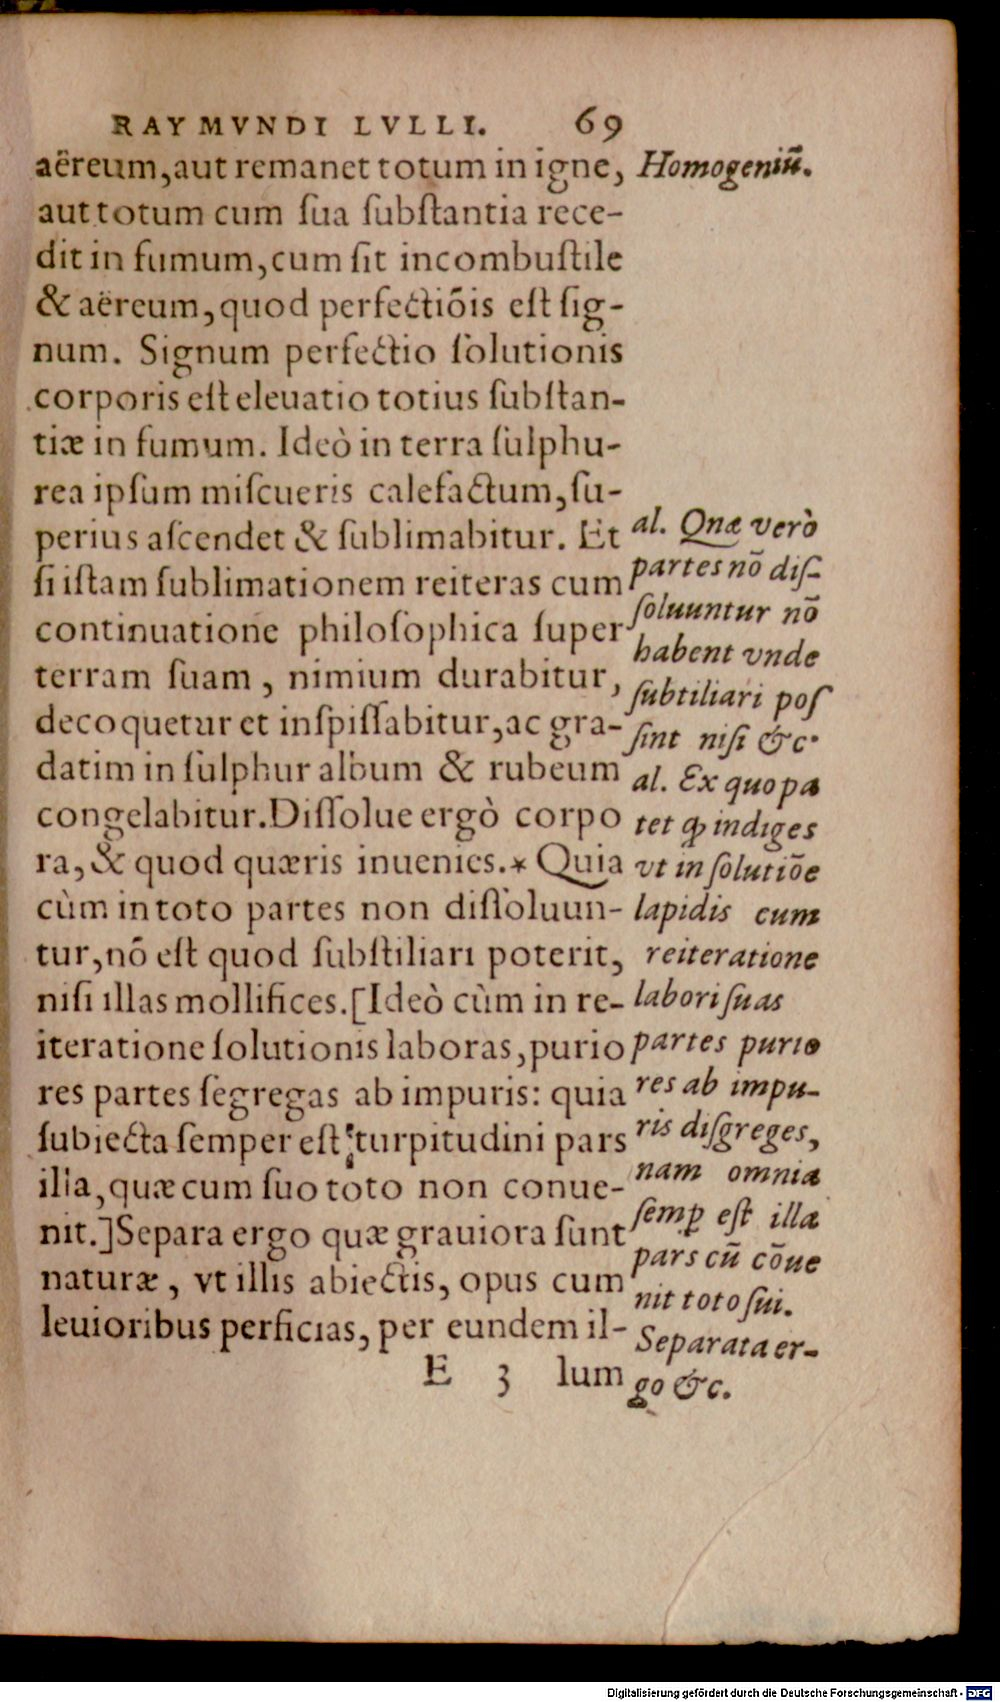 RAYMVNDI LVLLI. 69
aëreum,aut remanet totum in igne,
aut totum cum ſua ſubſtantia rece-
dit in fumum,cum ſit incombuſtile
& aëreum,quod perfectiōis eſt ſig-
num. Signum perfectio ſolutionis
corporis eſt eleuatio totius ſubſtan-
tiæ in fumum. Ideò in terra ſulphu-
rea ipſum miſcueris calefactum,ſu-
perius aſcendet & ſublimabitur. Et
ſi iſtam ſublimationem reiteras cum
continuatione philoſophica ſuper
terram ſuam , nimium durabitur,
decoquetur et inſpiſſabitur,ac gra-
datim in ſulphur album & rubeum
congelabitur.Diſſolue ergò corpo
ra,& quod quæris inuenies.* Quia
cùm in toto partes non diſſoluun-
tur,nō eſt quod ſubſtiliari poterit,
niſi illas mollifices.[Ideò cùm in re-
iteratione ſolutionis laboras,purio
res partes ſegregas ab impuris: quia
ſubiecta ſemper eſt turpitudini pars
illa,quæ cum ſuo toto non conue-
nit.]Separa ergo quæ grauiora ſunt
naturæ , vt illis abiectis, opus cum
leuioribus perficias, per eundem il-
E 3 lum
Homogeniū.
al. Qnæ verò
partes nō diſ-
ſoluuntur nō
habent vnde
ſubtiliari poſ
ſint niſi &c.
al. Ex quo pa
tet ꝙ indiges
vt in ſolutiōe
lapidis cum
reiteratione
labori ſuas
partes purio
res ab impu-
ris diſgreges,
nam omnia
ſemꝑ eſt illa
pars cū cōue
nit toto ſui.
Separata er-
go &c.
Digitalisierung gefördert durch die Deutsche Forschungsgemeinschaft - DFG